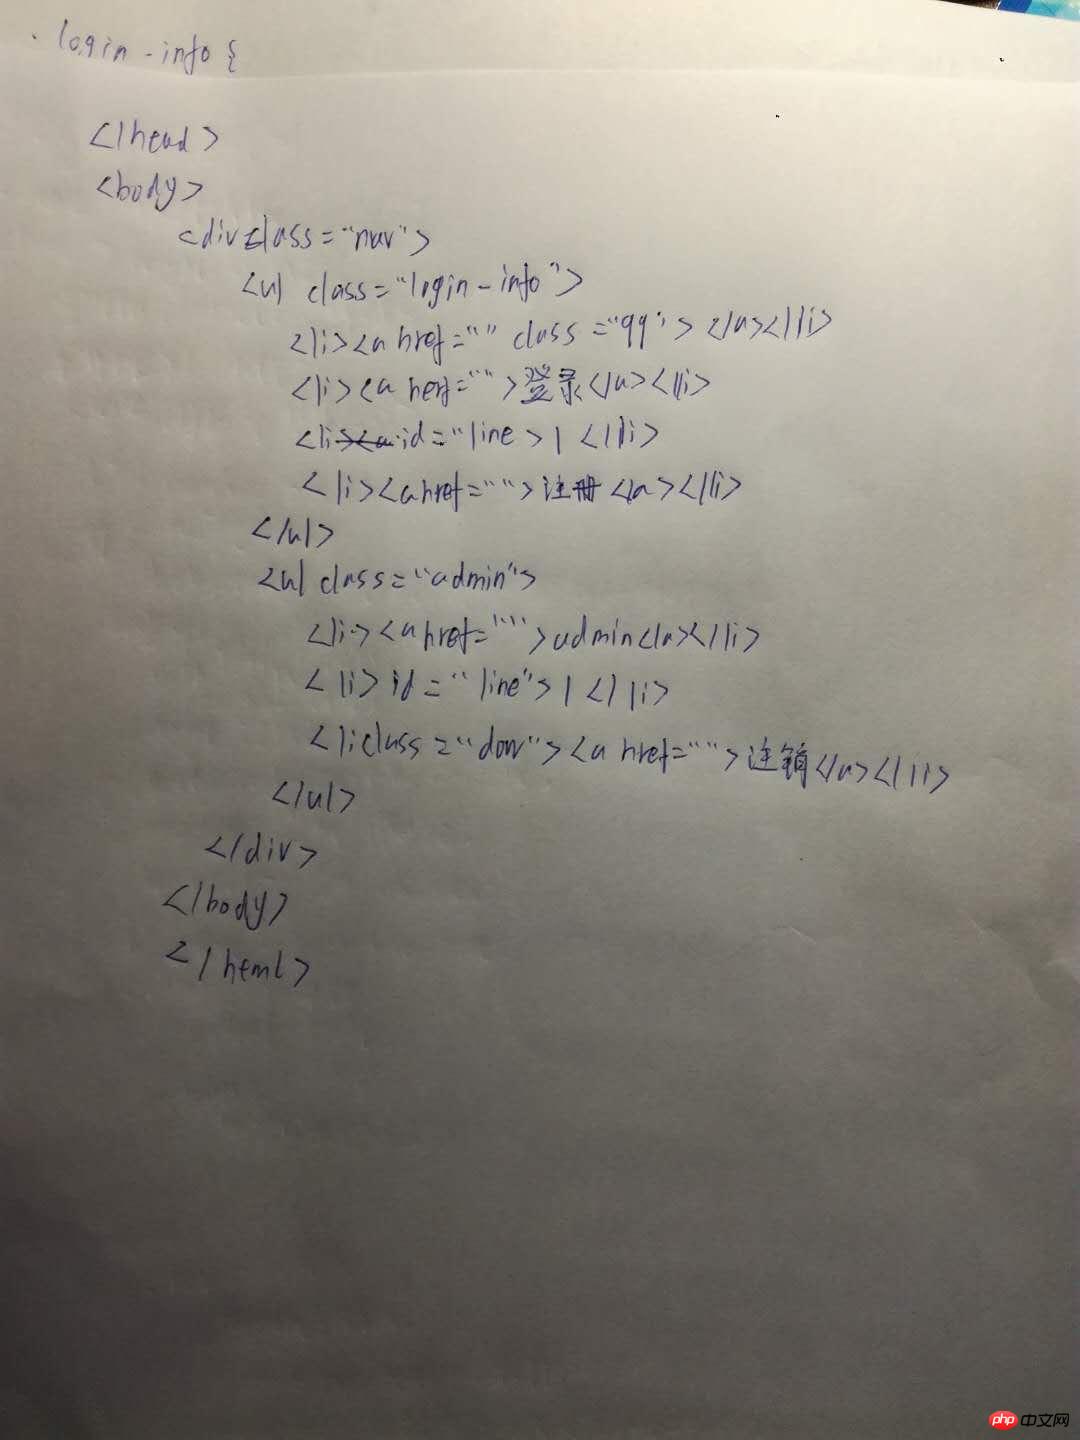 .login-info {
</head>
<body>
<div class="nav">
<ul class="login-info">
<li><a href="" class="qq"> </a></li>
<li><a herf="">登录</a></li>
<li id="line>|</li>
<li><a href="">注册</a></li>
</ul>
<ul class="admin">
<li><a href="">admin</a></li>
<li>id="line">|</li>
<li class="dow"><a href="">注销</a></li>
</ul>
</div>
</body>
</heml>
php 中文网